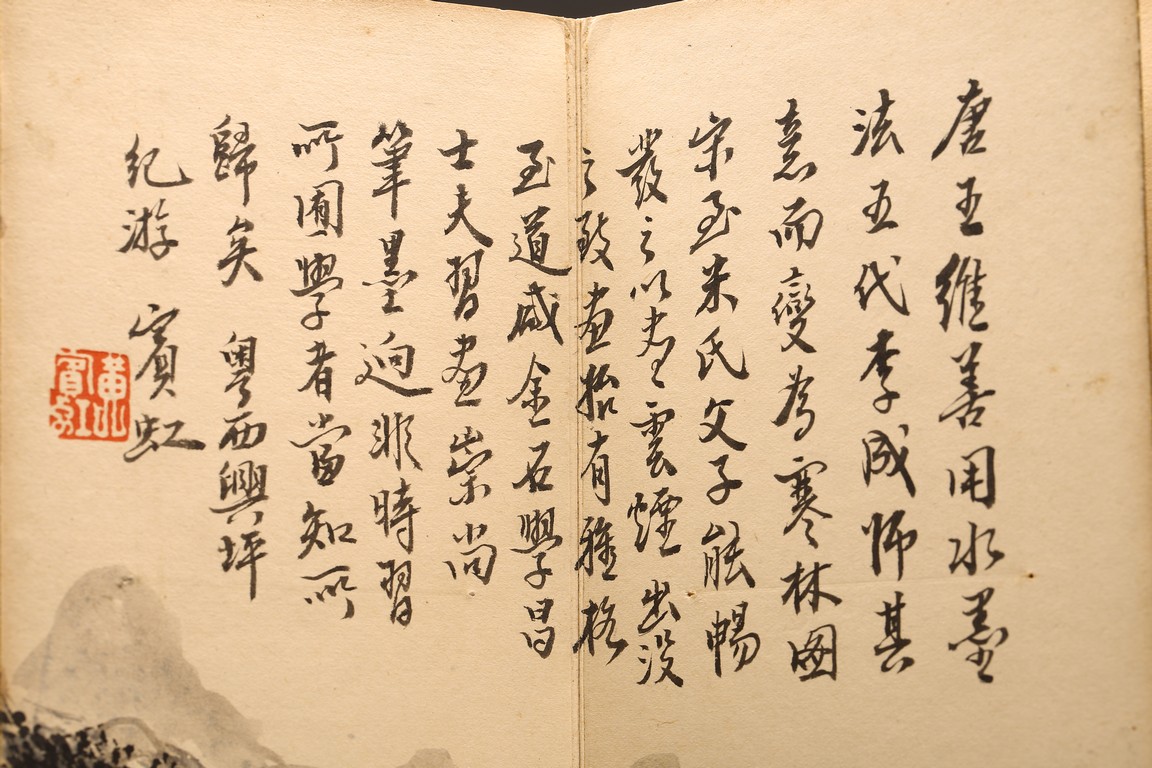 唐王維善用水墨
法五代李成師其
意而變為寒林圖
宋至米氏父子能暢
發之以盡雲煙出没
之致畫始有雅格
至道咸金石學昌
士夫習畫崇尚
筆墨迥非時習
所囿學者當知所
歸矣 粵西興坪
紀游 賓虹
黃山賓虹